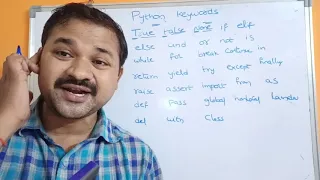 Python Keywords
True False None if elif
else and or not is
while for break continue in
return yield try except finally
raise assert import from as
def pass global nonlocal lambda
del with class